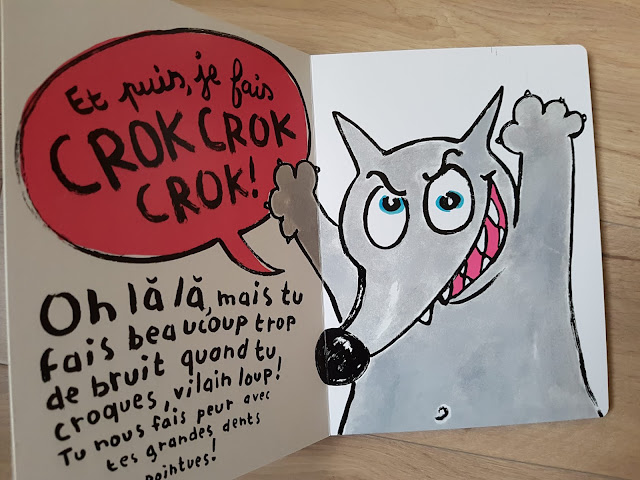 Et puis, je fais
CROK CROK
CROK!
Oh là là, mais tu
fais beaucoup trop
de bruit quand tu
croques, vilain loup!
Tu nous fais peur avec
tes grandes dents
pointues!